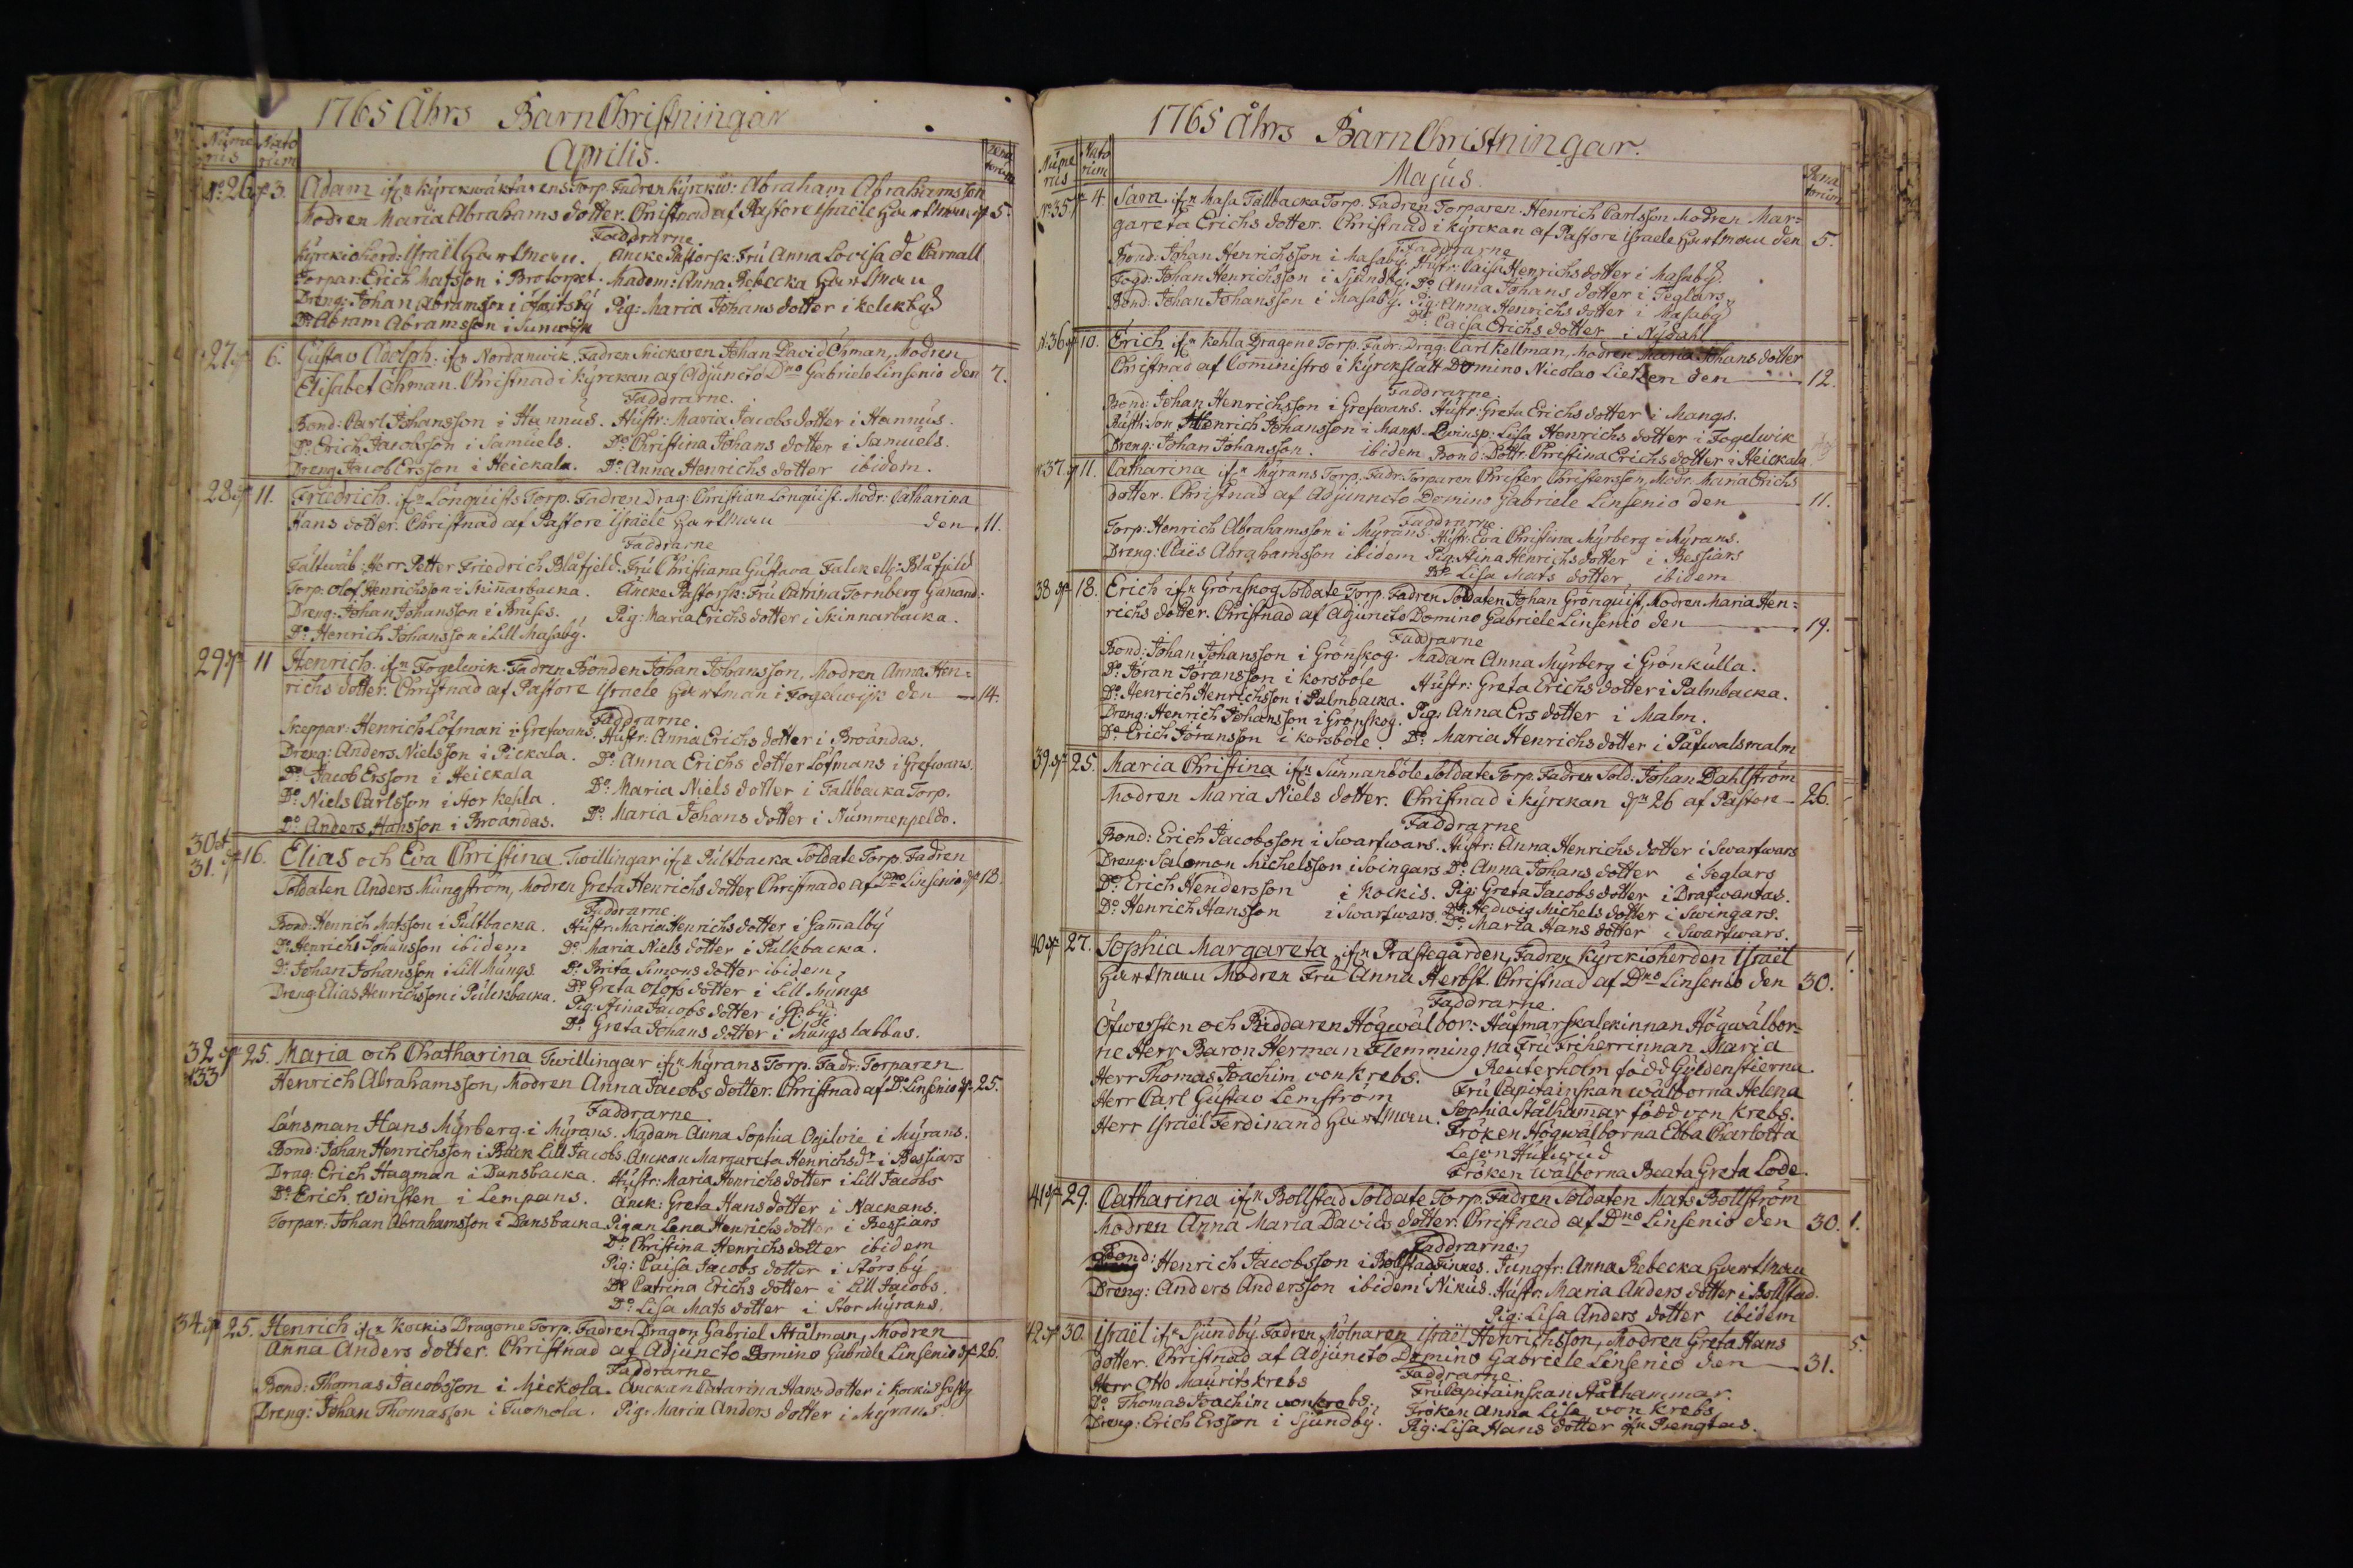 1765 Åhrs BarnChristningar
Nume Nato
rus rium
Aprilis.
Rena
torum
No. 26 d. 3. Adam ifrn Kyrckwäktarens Torp. Fadren Kyrckw: Abraham Abrahamsson
Modren Maria Abrahams dotter. Christnad af Pastore Israële Hartman d. 5.
Faddrarne
Kyrckioherd: Israël Hartman. Ancke Pastorsk: Fru Anna Lovisa de Carnall
Torpar: Erich Matsson i Brotorpet. Madem: Anna Rebecka Hartman
Dreng: Johan Abramsson i Pig: Maria Johans dotter i Kelekby
Do Abram Abramsson i Sunwijk
27. d. 6. Gustav Adolph. ifrn Nordanwik. Fadren Snickaren Johan David Öhman, Modren
Elisabet Öhman. Christnad i kyrckan af Adjuncto Dno Gabriele Linsenio den 7.
Faddrarne.
Bond: Carl Johansson i Hannus. Hustr: Maria Jacobs dotter i Hannus.
Do Erich Jacobsson i Samuels. Do Christina Johans dotter i Samuels.
Dreng Jacob Ersson i Heickala. Do Anna Henrichs dotter ibidem.
28 d. 11. Friedrich. ifrn Lönquists Torp. Fadren Drag: Christian Lonquist. Modr: Catharina
Hans dotter. Christnad af Pastore Israële Hartman den 11.
Faddrarne
Fältwäb: Herr Petter Friedrich Blåfjeld. Fru Christiana Gustava Falck ell: Blåfjeld
Torp: Olof Henrichsson i Skinnarbacka. Äncke Pastorsk: Fru Catrina Tornberg Ganand:
Dreng: Johan Johansson i Knuses. Pig: Maria Erichs dotter i Skinnarbacka.
Do Henrich Johansson i Lill Masaby.
29 d. 11 Henrich. ifrn Fogelwik. Fadren Bonden Johan Johansson, Modren Anna Hen=
richs dotter. Christnad af Pastore Israele Hartman i Fogelwijk den 14.
Faddrarne.
Skeppar: Henrich Löfman i Grefwans. Hustr: Anna Erichs dotter i Broändas.
Dreng: Anders Nielsson i Pickala. Do Anna Erichs dotter Löfmans i Grefwans.
Do Jacob Ersson i Heickala Do Maria Niels dotter i Fallbacka Torp.
Do Niels Carlsson i Stor kehla. Do Maria Johans dotter i Nummenpeldo.
Do Anders Hansson i Broandas.
30 et
31. d. 16. Elias och Eva Christina Twillingar ifrn Pultbacka Soldate Torp. Fadren
Soldaten Anders Mungstrom, Modren Greta Henrichs dotter, Christnade af Dno Linsenio d. 18.
Faddrarne.
Bond: Henrich Matsson i Pultbacka. Hustr: Maria Henrichs dotter i Gammalby
Do Henrichs Johansson ibidem Do Maria Niels dotter i Pultbacka.
Do Johan Johansson i Lill Mungs. Do Brita Simons dotter ibidem,
Dreng Elias Henrichsson i Pultbacka. Do Greta Olofs dotter i Lill Mungs
Pig: Stina Jacobs dotter i G: by.
Do Greta Johans dotter i Mungs labbas.
32 d. 25. Maria och Chatharina Twillingar ifrn Myrans Torp. Fadr: Torparen
33 Henrich Abrahamsson, Modren Anna Jacobs dotter. Christnad af Do Linsenio d. 25.
Faddrarne
Länsman Hans Myrberg i Myrans. Madam Anna Sophia Ogilvie i Myrans.
Bond: Johan Henrichsson i Back Lill Jacobs. Anckan Margareta Henrichs dr i Bessiars
Drag: Erich Hagman i Dansbacka. Hustr: Maria Henrichs dotter i Lill Jacobs
Do Erich Winsten i Lempans. Änck: Greta Hans dotter i Nackans.
Torpar: Johan Abrahamsson i Dansbacka. Pigan Lena Henrichs dotter i Bessiars
Do Christina Henrichs dotter ibidem
Pig: Caisa Jacobs dotter i Störsby
Do Catrina Erichs dotter i Lill Jacobs.
Do Lisa Mats dotter i Stor Myrans.
34. d. 25. Henrich ifrn Kockis Dragone Torp. Fadren Dragon Gabriel Strålman, Modren
Anna Anders dotter. Christnad af Adjuncto Domino Gabriele Linsenio d. 26.
Faddrarne
Bond: Thomas Jacobsson i Mickola. Anckan Catarina Hans dotter i Kockis
Dreng: Johan Thomasson i Tuomola. Pig: Maria Anders dotter i Myrans.
1765 Åhrs BarnChristningar.
Nume Nato
rus rium
Majus.
Rena
torum
No. 35. d. 4. Sara. ifrn Masa Fallbacka Torp. Fadren Torparen Henrich Carlsson Modren Mar=
gareta Erichs dotter. Christnad i kyrckan af Pastore Israele Hartman den 5.
Faddrarne
Bond: Johan Henrichsson i Masaby. Hustr: Caisa Henrichs dotter i Masaby
Fogd: Johan Henrichsson i Sjundby. Do Anna Johans dotter i Teglars
Bond: Johan Johansson i Masaby. Pig: Anna Henrichs dotter i Masaby
Do Caisa Erichs dotter i Nydahl
N. 36 d. 10. Erich ifrn Kehla Dragone Torp. Fadr: Drag: Carl Kellman, Modren Maria Johans dotter
Christnad af Comministro i Kyrckslätt Domino Nicolao Lietzen den 12.
Faddrarne
Bond: Johan Henrichsson i Grefwans. Hustr: Greta Erichs dotter i Mangs.
Rusth: Son Henrich Johansson i Mangs. Qwinsp: Lisa Henrichs dotter i Fogelwik
Dreng: Johan Johansson. ibidem Bond: Dottr. Christina Erichs dotter i Heickala
N. 37. d. 11. Catharina ifrn Myrans Torp. Fadr: Torparen Christer Christersson, Modr. Maria Erichs
dotter. Christnad af Adjunncto Domino Gabriele Linsenio den 11.
Faddrarne
Torp: Henrich Abrahamsson i Myrans. Hustr: Eva Christina Myrberg i Myrans.
Dreng: Claes Abrahamsson ibidem Pig: Stina Henrichs dotter i Bessiars
Do Lisa Mats dotter, ibidem
38 d. 18. Erich ifrn Grönskog Soldate Torp. Fadren Soldaten Johan Grönquist, Modren Maria Hen=
richs dotter. Christnad af Adjuncto Domino Gabriele Linsenio den 19.
Faddrarne
Bond: Johan Johansson i Grönskog. Madam Anna Myrberg i Grönkulla.
Do Jöran Jöransson i Korsböle Hustr: Greta Erichs dotter i Palmbacka.
Do Henrich Henrichsson i Palmbacka. Pig: Anna Ers dotter i Malm.
Dreng: Henrich Johansson i Grönskog. Do Maria Henrichs dotter i Påfwalsmalm
Do Erich Jöransson i Korsböle.
39. d. 25. Maria Christina ifrn Sunnanböle Soldate Torp. Fadren Sold: Johan Dahlström
Modren Maria Niels dotter. Christnad i kyrckan den 26 af Pastore 26.
Faddrarne
Bond: Erich Jacobsson i Swarfwars. Hustr: Anna Henrichs dotter i Swarfwars
Dreng: Salomon Michelsson i Svingars Do Anna Johans dotter i Teglars
Do Erich Hendersson i Kockis. Pig: Greta Jacobs dotter i Drafwantas.
Do Henrich Hansson i Swarfwars. Do Hedwig Michels dotter i Swingars.
Do Maria Hans dotter i Swarfwars.
40 d. 27. Sophia Margareta, ifrn Prästegården, Fadren Kyrckioherden Israël
Hartman Modren Fru Anna Herbst. Christnad af Dno Linsenio den 30.
Faddrarne
Öfwersten och Riddaren Högwälbor: Håfmarskalckinnan Högwälbor=
ne Herr Baron Herman Flemming na Fru Friherrinnan Maria
Herr Thomas Joachim von Krebs. Reuterholm född Gyldenstierna
Herr Carl Gustav Lemström Fru Capitainskan Wälborna Helena
Herr Israël Ferdinand Hartman. Sophia Stålhammar född von Krebs.
Fröken Högwälborna Ebba Charlotta
Lejonhufwud
Fröken Wälborna Beata Greta Lode.
41 d. 29. Catharina ifrn Bollstad Soldate Torp. Fadren Soldaten Mats Bollström
Modren Anna Maria Davids dotter. Christnad af Dno Linsenio den 30. 1.
Faddrarne.
Bond: Henrich Jacobsson i Bollstad Finnes. Jungfr: Anna Rebecka Hartman
Dreng: Anders Andersson ibidem Nikus. Hustr: Maria Anders dotter i Bollstad.
Pig: Lisa Anders dotter ibidem
42 d. 30. Israël ifrn Sjundby. Fadren Mölnaren Israël Henrichsson, Modren Greta Hans 5.
dotter. Christnad af Adjuncto Domino Gabriele Linsenio den 31.
Faddrarne.
Herr Otto Maurits Krebs Fru Capitainskan Stålhammar.
Do Thomas Joachim von Krebs. Fröken Anna Lisa von Krebs
Dreng: Erich Ersson i Sjundby. Pig: Lisa Hans dotter ifrn Rengtas.